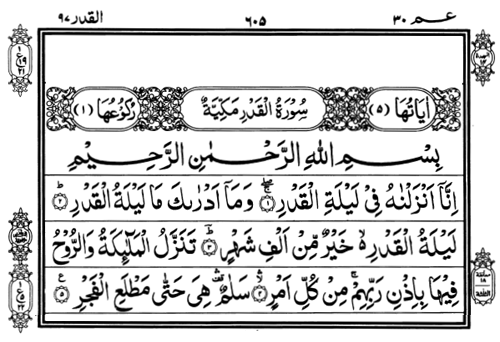 عـــم ٣٠ ٦٠٥ القدر ٩٧
اٰيَاتُهَا (٥) سُوْرَةُ الْقَدْرِ مَكِّيَّةٌ رُكُوْعُهَا (١)
بِسْمِ اللهِ الرَّحْمٰنِ الرَّحِيْمِ
اِنَّاۤ اَنْزَلْنٰهُ فِيْ لَيْلَةِ الْقَدْرِ ۚۖ ١ وَمَاۤ اَدْرٰىكَ مَا لَيْلَةُ الْقَدْرِ ؕ ٢
لَيْلَةُ الْقَدْرِ ۙ خَيْرٌ مِّنْ اَلْفِ شَهْرٍ ؕ ٣ تَنَزَّلُ الْمَلٰٓئِكَةُ وَالرُّوْحُ
فِيْهَا بِاِذْنِ رَبِّهِمْ ۚ مِنْ كُلِّ اَمْرٍ ۙ ٤ سَلٰمٌ ۛ هِيَ حَتّٰى مَطْلَعِ الْفَجْرِ ٥